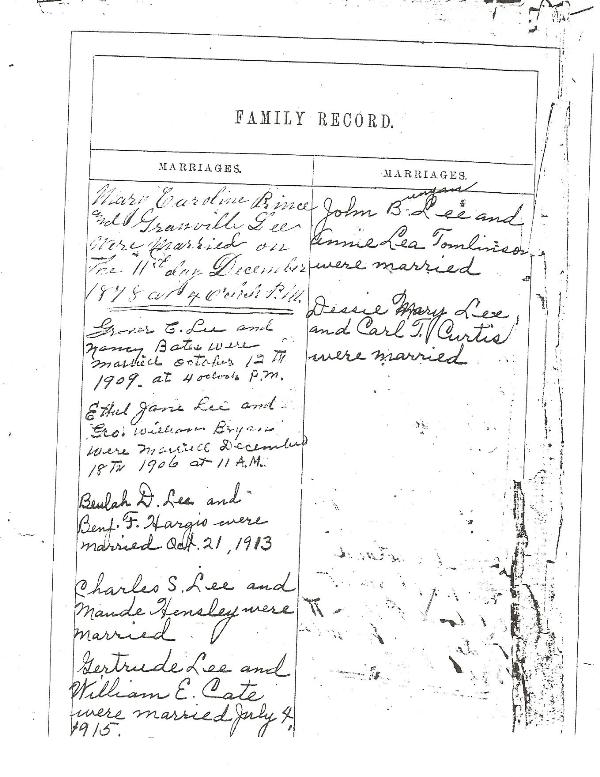 FAMILY RECORD.
MARRIAGES.
Mary Caroline Rince
and Granville Lee
Were Married on
The 11st day December
1878 at 4 P.M.
Grover C. Lee and
Nancy Bates were
married October 12 TH
1909. at 4 oclock P.M.
Ethel Jane Lee and
Geo. William Bryan
were married December
18TH 1906 at 11 A.M.
Beulah D. Lee and
Benj. F. Hargis were
married Oct. 21, 1913
Charles S. Lee and
Maude Hensley were
married
Gertrude Lee and
William E. Cate
were married July 4,
1915.
MARRIAGES.
John B. Lee and
Annie Lea Tomlinson
were married
Dessie Mary Lee,
and Carl T. Curtis
were married